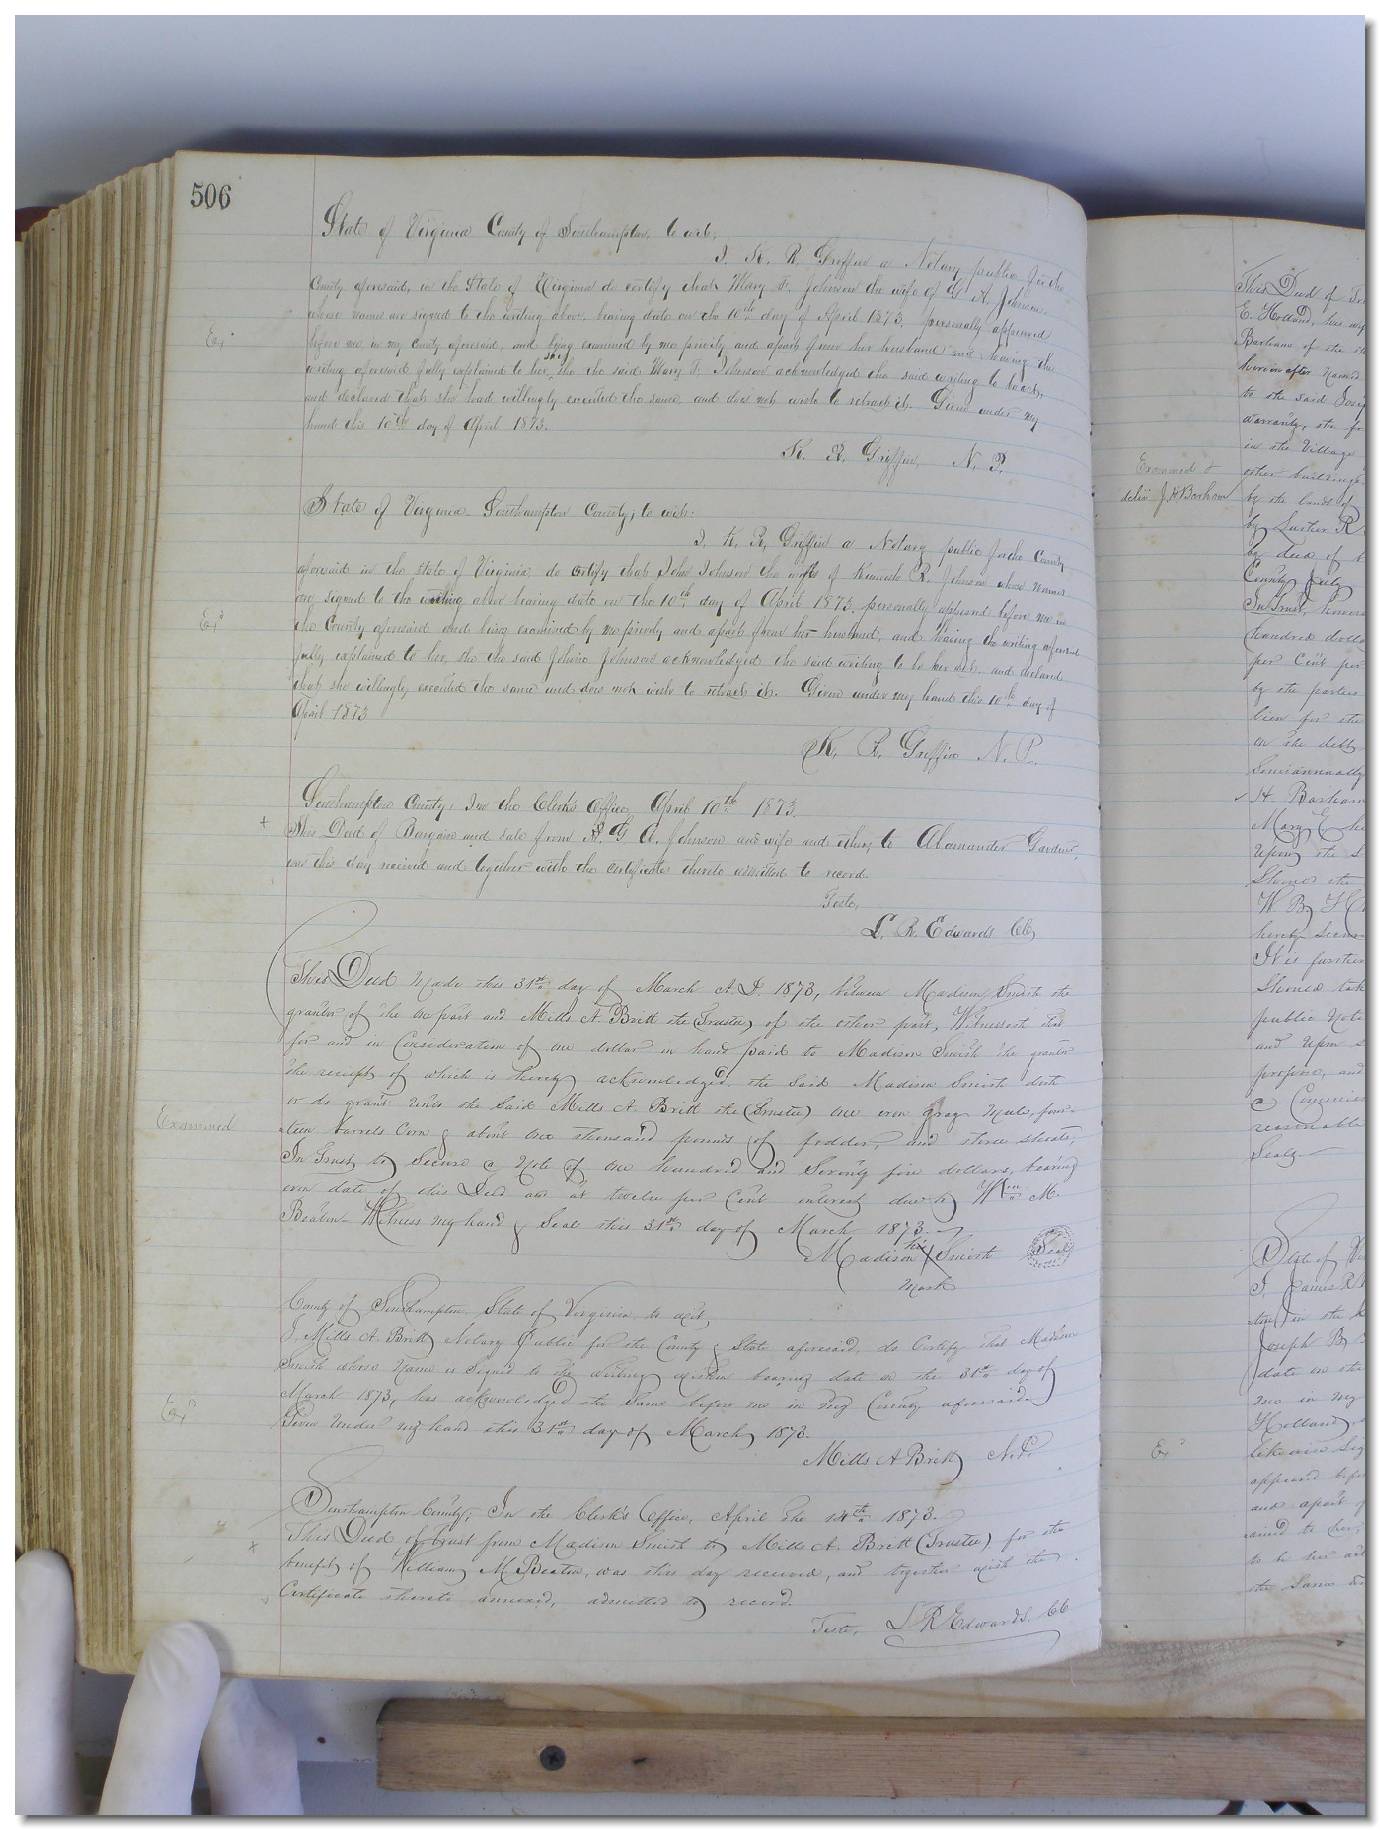 506
State of Virginia County of Southampton, to wit;
I. K. R. Griffin a Notary public for the
County aforesaid, in the State of Virginia do certify that Mary F. Johnson the wife of G. A. Johnson
whose names are signed to the writing above, bearing date on the 10th day of April 1873, personally appeared
before me in my County aforesaid, and being examined by me privily and apart from her husband and having the
Ex'd
writing aforesaid fully explained to her, she the said Mary F. Johnson acknowledged the said writing to be her act,
and declared that she had willingly executed the same and does not wish to retract it. Given under my
hand this 10th day of April 1873.
K. R. Griffin, N. P.
State of Virginia Southampton County, to wit:
I, K. R. Griffin a Notary public for the County
aforesaid in the State of Virginia, do certify that Johnson the wife of R. Johnson whose names
are signed to the writing above bearing date on the 10th day of April 1873, personally appeared before me in
Ex'd
the County aforesaid and being examined by me privily and apart from her husband, and having the writing aforesaid
fully explained to her, she the said Johnson acknowledged the said writing to be her act, and declared
that she willingly executed the same and does not wish to retract it. Given under my hand this 10th day of
April 1873
K. R. Griffin N. P.
Southampton County: In the Clerk's Office, April 10th 1873.
+ This Deed of Bargain and sale from G. A. Johnson and wife and others to Alexander Gardner,
was this day received and together with the certificate thereto admitted to record.
Teste,
L. R. Edwards CC,
This Deed made this 31st day of March A.D. 1873, between Madison Smith the
grantor of the one part and Mills A. Britt the (Trustee) of the other part, Witnesseth that
for and in Consideration of one dollar in hand paid to Madison Smith the grantor
the receipt of which is hereby acknowledged, the said Madison Smith doth
or do grant unto the said Mills A. Britt the (Trustee) one iron gray Mule, four-
Examined
teen barrels Corn & about one thousand pounds of fodder, and three shoats,
In Trust to Secure a Note of One hundred and Seventy five dollars, bearing
even date of this Deed and at twelve per Cent interest due to Wm M.
Beaton- Witness my hand & Seal this 31st day of March 1873.
Madison his X mark Smith Seal
County of Southampton, State of Virginia, to wit,
I, Mills A. Britt, Notary Public for the County & State aforesaid, do Certify that Madison
Smith whose Name is Signed to the writing within bearing date on the 31st day of
March 1873, has acknowledged the Same before me in my County aforesaid
Ex'd
Given under my hand this 31st day of March 1873.
Mills A Britt, N.P.
Southampton County; In the Clerk's Office, April the 14th 1873.
+ This Deed of trust from Madison Smith to Mills A. Britt (Trustee) for the
benefit of William M. Beaton, was this day received, and together with the
Certificate thereto annexed, admitted to record.
Teste, L R Edwards. CC
This Deed of
E. Holland, his
Barham of the
hereinafter named
to the said
warranty, the
in the Village
Examined &
other buildings
deliv J. H Barham
by the lands of
by
by deed of
County
In Trust, however
hundred dolla
per Cent per
by the parties
lien for the
on the debt
Semiannually
H Barham
Mary E
Upon the
Should the
W B
hereby
It is further
Should
public
and Upon
propose, and
a
reasonable
Seals
State of
I, James R
in the
Joseph B.
date on the
me in my
Holland
Ex'd
likewise
appeared before
and apart
to her,
to be her act
the same